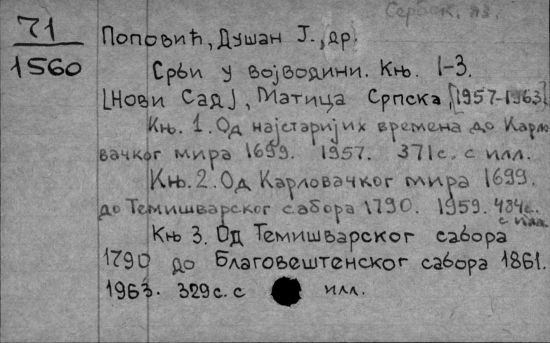 Сербск. яз.
71
1560
Поповић, Душан Ј., др.
Срби у војводини. Књ. 1-3.
[Нови Сад], Матица Српска, [1957-1963]
Књ. 1. Од најстаријих времена до Карло
вачког мира 1699. 1957. 371 с. с илл.
Књ. 2. Од Карловачког мира 1699.
до Темишварског сабора 1790. 1959. 484 с.
с илл.
Књ 3. Од Темишварског сабора
1790 до Благовештенског сабора 1861.
1963. 329 с. с илл.